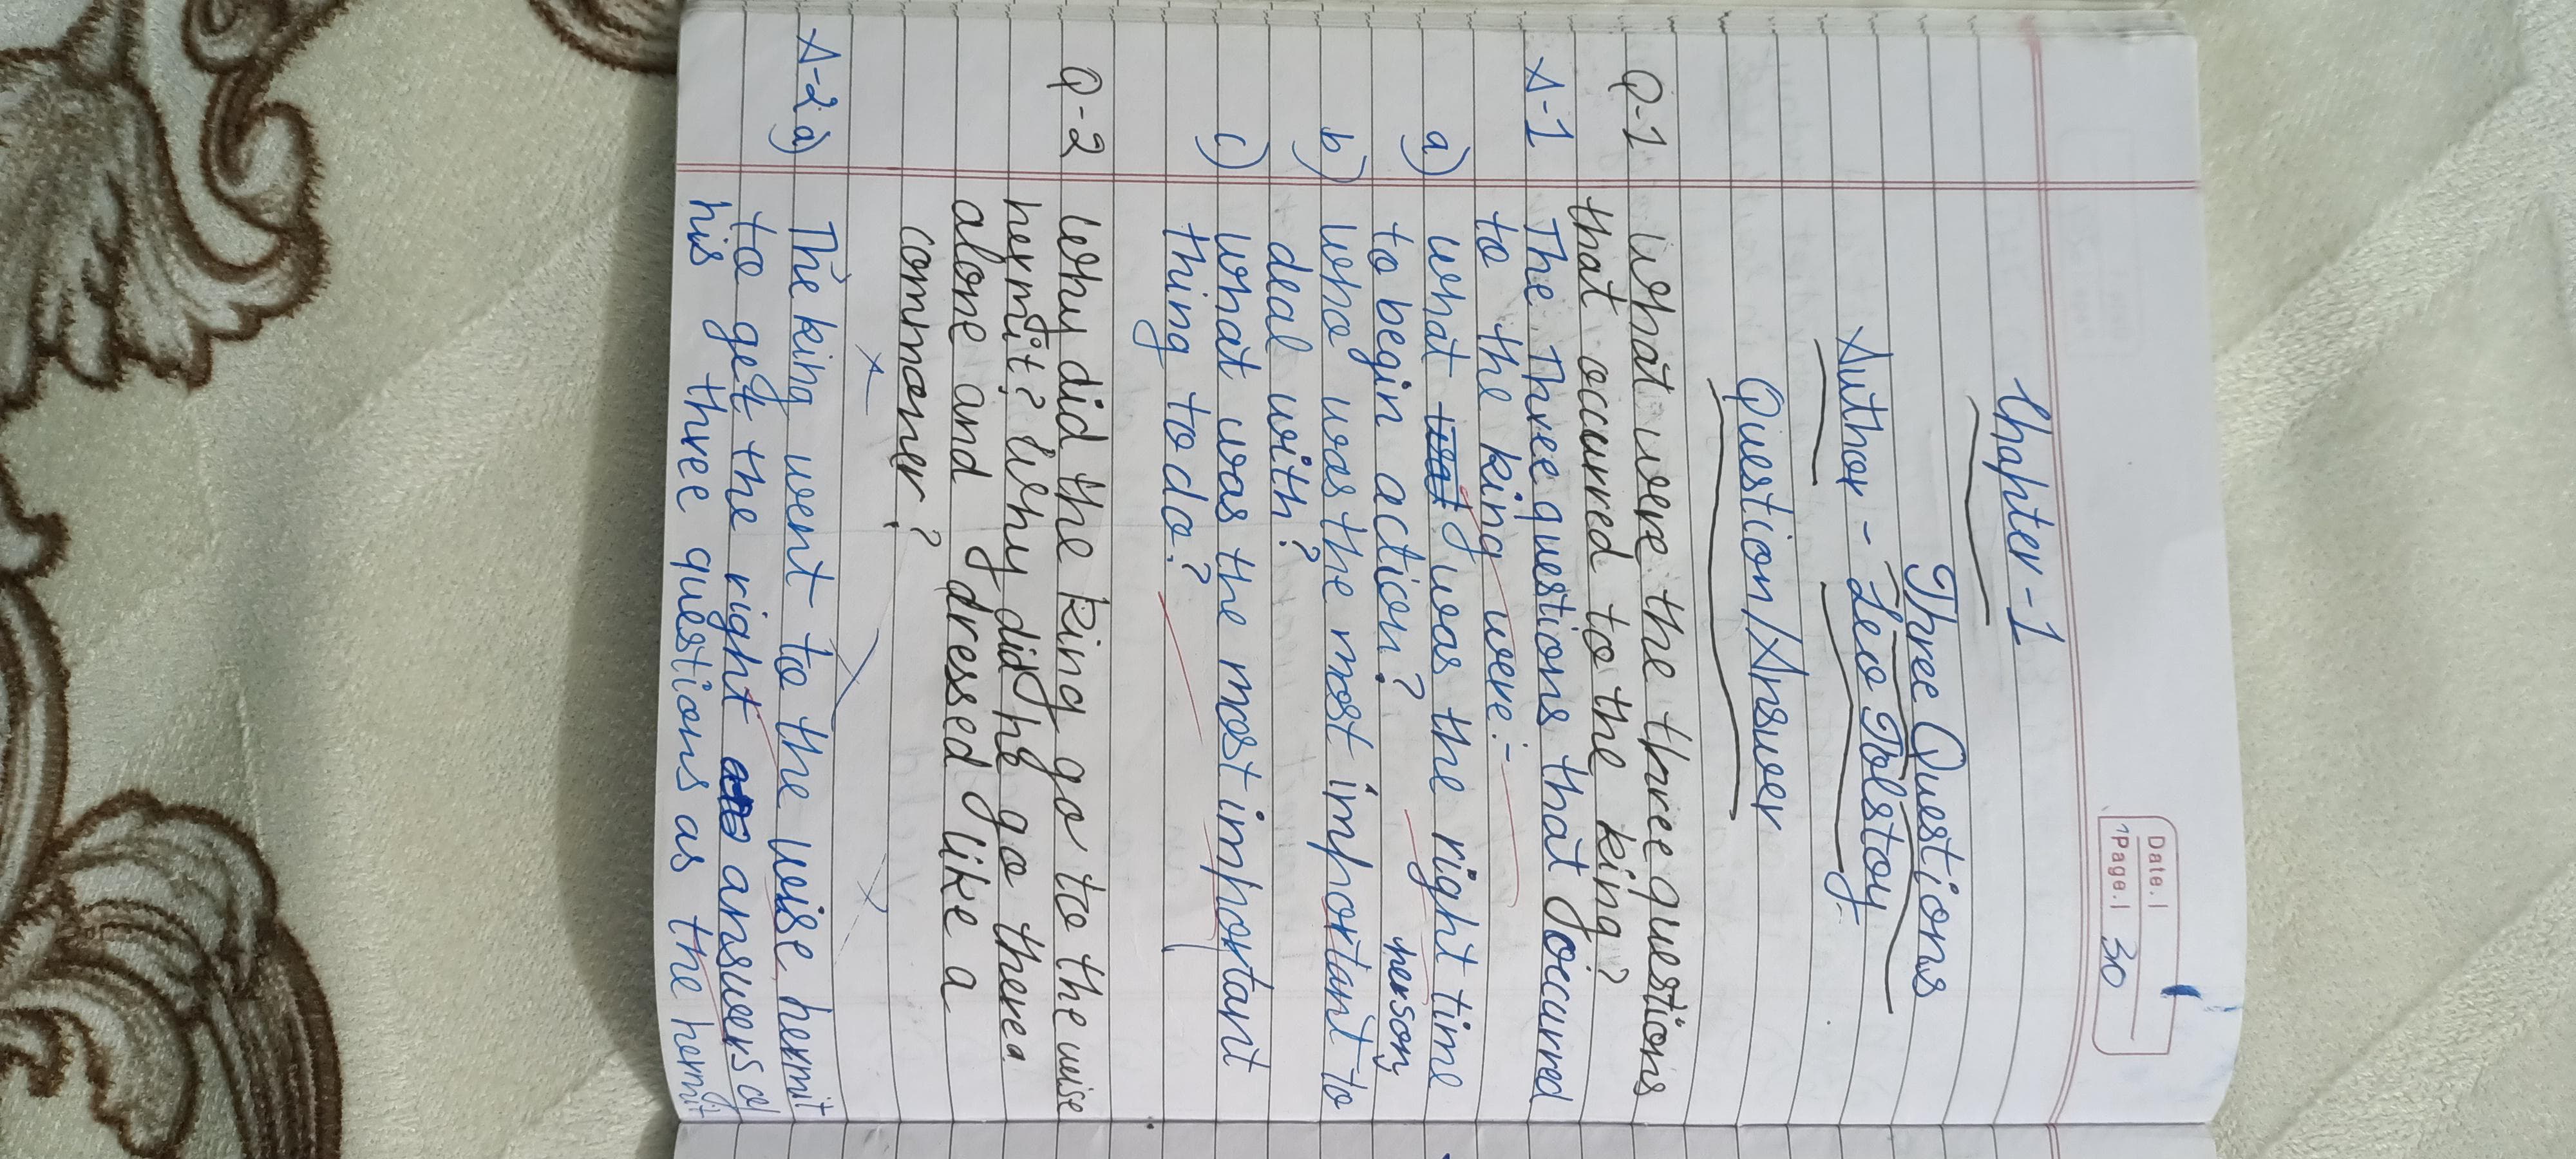 Date.
Page. 30
Chapter-1
Three Questions
Author - Leo Tolstoy
Question/Answer
Q-1 What were the three questions
that occurred to the king?
A-1 The three questions that occurred
to the king were:-
a) what was the right time
to begin action?
person
b) who was the most important to
deal with?
c) what was the most important
thing to do?
Q-2 Why did the king go to the wise
hermit? Why did he go there
alone and dressed like a
commoner?
A-2 a) The king went to the wise hermit
to get the right answers of
his three questions as the hermit